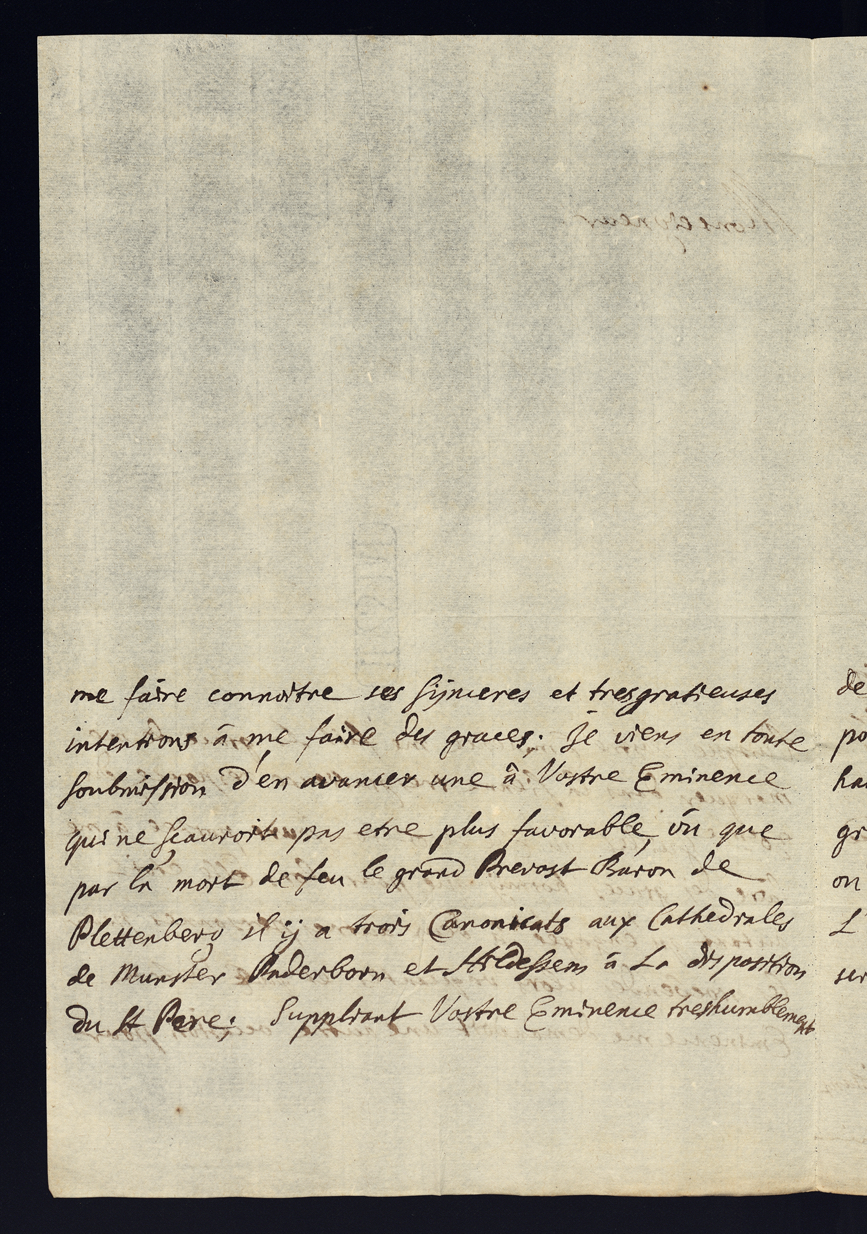 me faire connoitre ses sinceres et tresgratieuses
intentions â me faire des graces; je viens en toute
soubmission d'en avancer une â Vostre Eminence
qui ne sçauroit pas etre plus favorable, vû que
par la mort de feu le grand Prevost Baron de
Plettenberg il ÿ a trois Canonicats aux Cathedrales
de Munster Paderborn et Hildessem â La disposition
du St Pere; Suppliant Vostre Eminence treshumblement
de
po
ha
gr
on
L'
ser